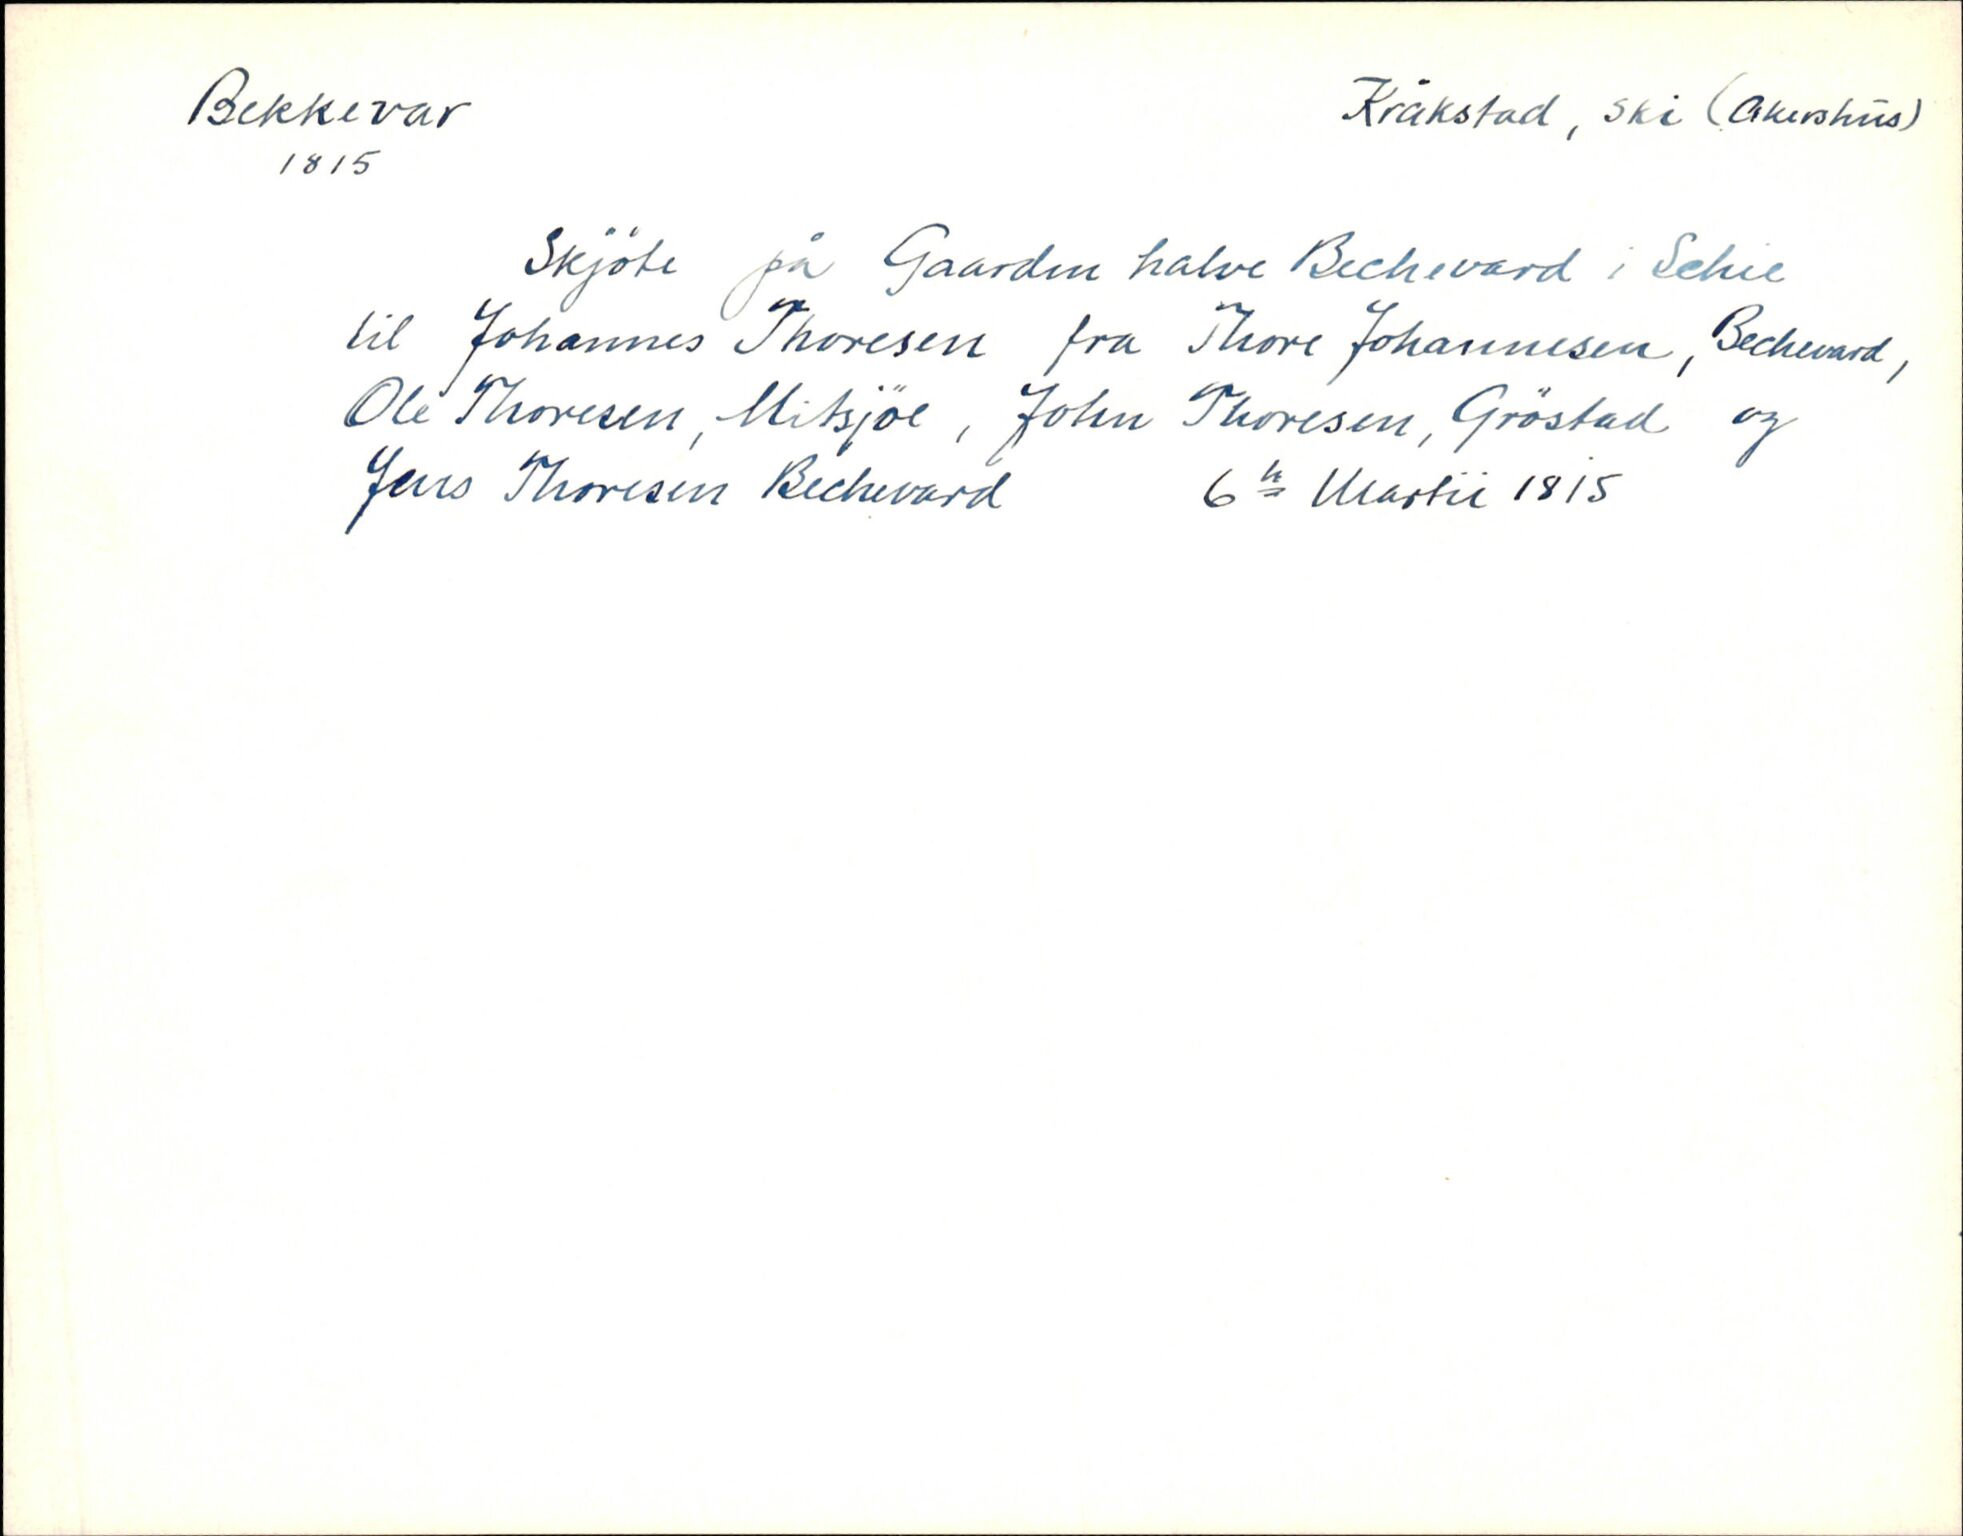 Bekkevar
Kråkstad, Ski (Akershūs)
1815
Skjöte på Gaarden halve Bechevard i Schie
til Johannes Thoresen fra Thore Johannesen, Bechevard,
Ole Thoresen, Mitsjöe, John Thoresen, Gröstad og
Jens Thoresen Bechevard 6te Martii 1815